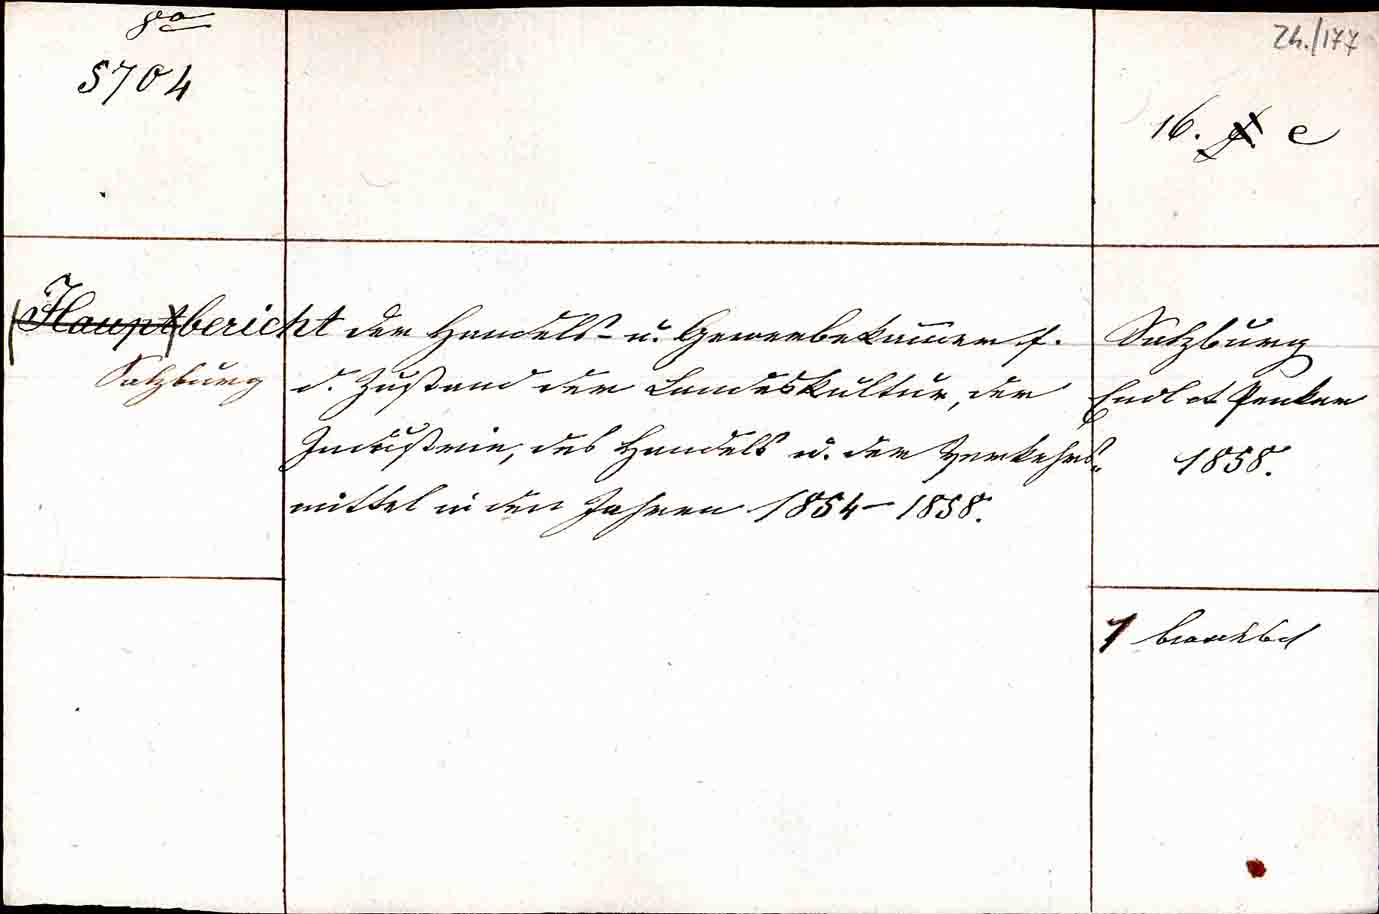 8°
5704
Zh./177
16. f. e
Hauptbericht der Handels- u. Gewerbekam̅er f.
Salzburg
d. Zustand der Landeskultur, der
Industrie, des Handels u. der Verkehrs-
mittel in den Jahren 1854–1858.
Salzburg
Endl et Penker
1858.
1